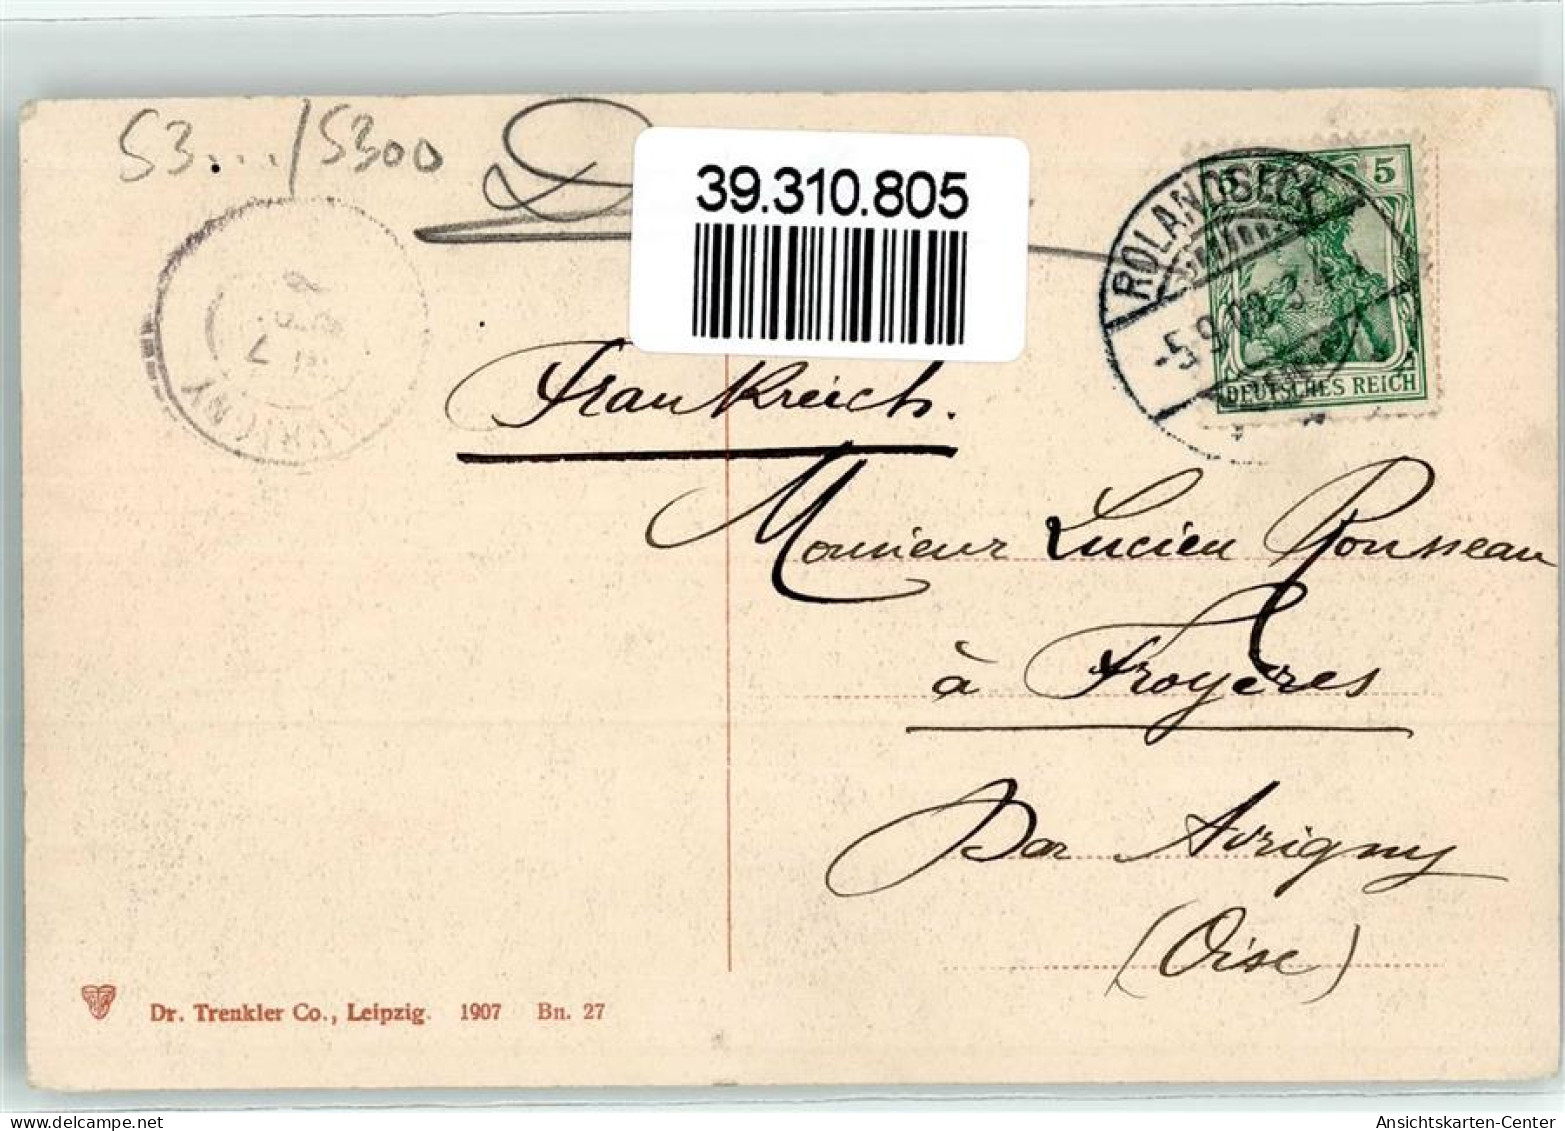 S3.../5300
39.310.805
ROLANDSECK
-5.9.08. 3-4
5
DEUTSCHES REICH
AVRIGNY
Frankreich.
Monsieur Lucien Rousseau
à Froyères
Par Avrigny
(Oise)
Dr. Trenkler Co., Leipzig. 1907 Bn. 27
Ansichtskarten-Center